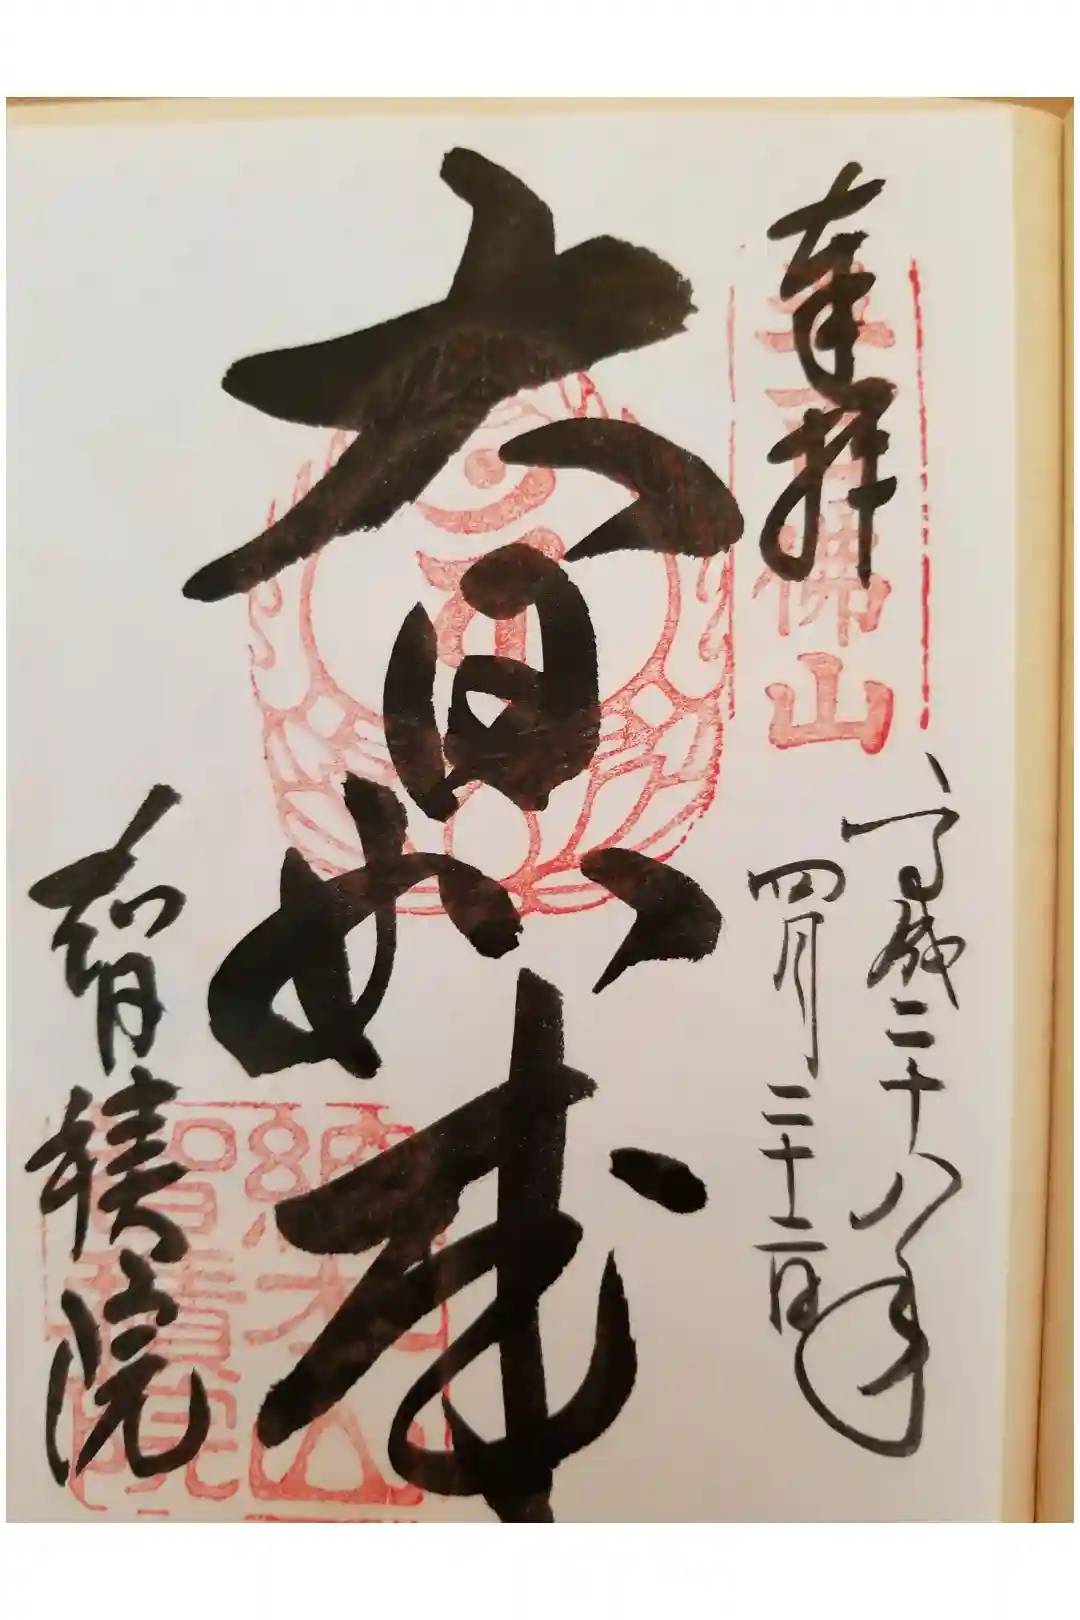 奉拝
五百佛山
平成二十八年
四月二十二日
大日如来
總本山
智積院
智積院